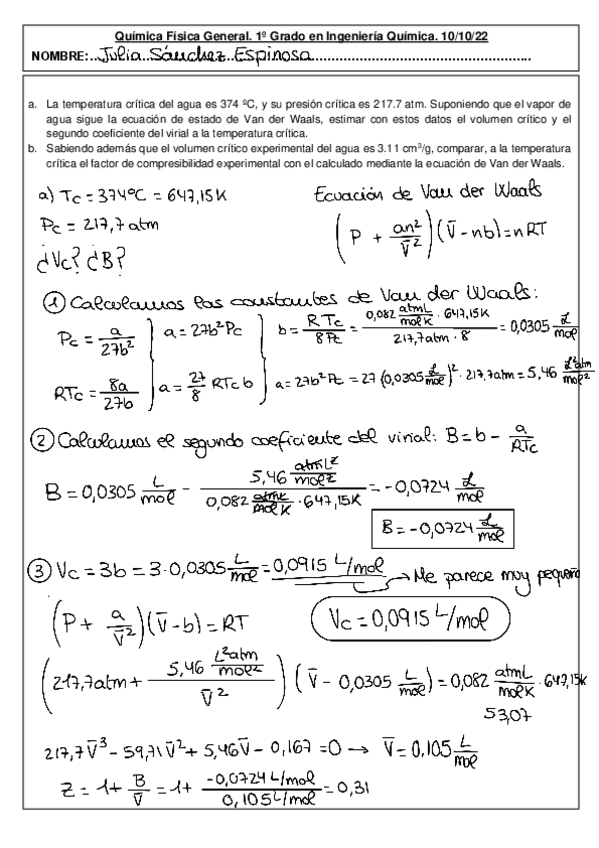 Química Física General. 1º Grado en Ingeniería Química. 10/10/22
NOMBRE:..Julia Sánchez Espinosa
a. La temperatura crítica del agua es 374 ºC, y su presión crítica es 217.7 atm. Suponiendo que el vapor de
agua sigue la ecuación de estado de Van der Waals, estimar con estos datos el volumen crítico y el
segundo coeficiente del virial a la temperatura crítica.
b. Sabiendo además que el volumen crítico experimental del agua es 3.11 cm³/g, comparar, a la temperatura
crítica el factor de compresibilidad experimental con el calculado mediante la ecuación de Van der Waals.
a) Tc = 374ºC = 647,15K
Ecuación de Van der Waals
Pc = 217,7 atm
(P + an²/V̄²)(V̄ - nb) = nRT
¿Vc? ¿B?
① Calculamos las constantes de Van der Waals:
Pc = a/27b² } a = 27b²Pc } b = RTc/8Pc = 0,082 atmL/molK · 647,15K / 217,7atm · 8 = 0,0305 L/mol
RTc = 8a/27b } a = 27/8 RTc b } a = 27b²Pc = 27 (0,0305 L/mol)² · 217,7atm = 5,46 L²atm/mol²
② Calculamos el segundo coeficiente del virial: B = b - a/RTc
B = 0,0305 L/mol - 5,46 atmL²/mol² / 0,082 atmL/molK · 647,15K = -0,0724 L/mol
B = -0,0724 L/mol
③ Vc = 3b = 3·0,0305 L/mol = 0,0915 L/mol → Me parece muy pequeño
(P + a/V̄²)(V̄ - b) = RT
Vc = 0,0915 L/mol
(217,7atm + 5,46 L²atm/mol² / V̄²)(V̄ - 0,0305 L/mol) = 0,082 atmL/molK · 647,15K
53,07
217,7V̄³ - 59,71V̄² + 5,46V̄ - 0,167 = 0 → V̄ = 0,105 L/mol
Z = 1 + B/V̄ = 1 + -0,0724 L/mol / 0,105 L/mol = 0,31